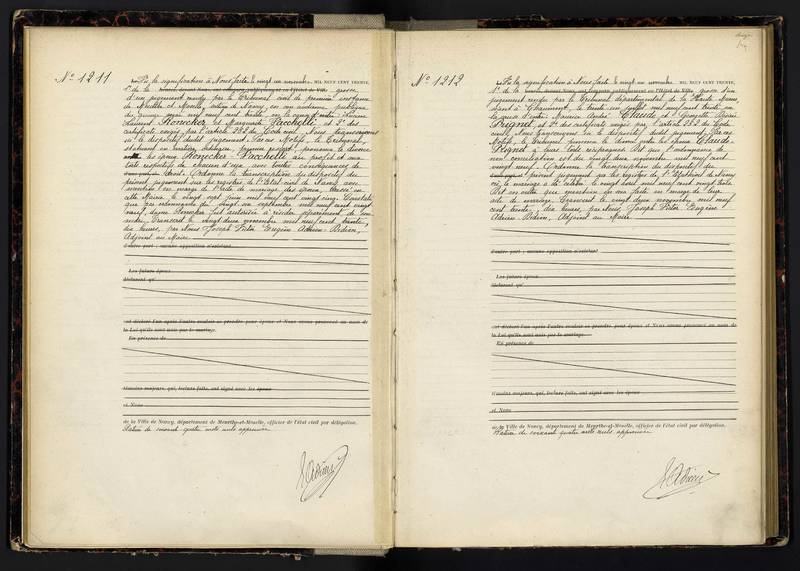 N° 1211
Sur la signification à Nous faite le vingt un novembre MIL NEUF CENT TRENTE,
1° de la grosse
d'un jugement rendu par le Tribunal civil de première instance
de Meurthe et Moselle, section de Nancy en son audience publique
mil neuf cent trente en la cause d'entre: Lucien
Honecker et Marguerite Pacchelli et 2° des
certificats exigés par l'article 252 du Code civil. Nous transcrivons
ici le dispositif dudit jugement. Par ces Motifs, Le Tribunal,
Statuant en matière publique, premier ressort, prononce le divorce
les époux Honecker-Pacchelli au profit et aux
torts respectifs de chacun d'eux avec toutes conséquences de
droit. Ordonne la transcription du dispositif du
présent jugement sur les registres de l'Etat civil de Nancy avec
mention en marge de l'acte de mariage des époux, dressé en
cette Mairie, le vingt sept juin mil neuf cent vingt cinq. Constate
que par ordonnance du vingt six septembre mil neuf cent vingt
neuf, dame Honecker fut autorisée à résider séparément de son
mari. Transcrit le vingt deux novembre mil neuf cent trente,
dix heures, par Nous Joseph Victor Eugène Adrien Bidion,
Adjoint au Maire
d'autre part ; aucune opposition n'existant
Les futurs époux
déclarent qu'
ont déclaré l'un après l'autre vouloir se prendre pour époux et Nous avons prononcé au nom de
la Loi qu'ils sont unis par le mariage.
En présence de
témoins majeurs, qui, lecture faite, ont signé avec les époux
et Nous
de la Ville de Nancy, département de Meurthe-et-Moselle, officier de l'état civil par délégation.
Rature de soixante quatre mots nuls approuvée
N° 1212
Sur la signification à Nous faite le vingt un novembre MIL NEUF CENT TRENTE,
1° de la grosse d'un
jugement rendu par le Tribunal départemental de la Haute Marne
séant à Chaumont, le trente un juillet mil neuf cent trente en
la cause d'entre: Maurice André Claude et Georgette
Prignot, et 2° des certificats exigés par l'article 252 du Code
civil. Nous transcrivons ici le dispositif dudit jugement. Par ces
Motifs, le Tribunal prononce le divorce entre les époux Claude-
Prignot à leurs torts respectifs. Dit que l'ordonnance de
non conciliation est du vingt deux novembre mil neuf cent
vingt neuf. Ordonne la transcription du dispositif du
présent jugement sur les registres de l'Etat civil de Nancy
où le mariage a été célébré le vingt avril mil neuf cent vingt trois.
Dit en outre que mention en sera faite en marge de leur
acte de mariage. Transcrit le vingt deux novembre mil neuf
cent trente, dix heures, par Nous, Joseph Victor Eugène
Adrien Bidion, Adjoint au Maire
d'autre part ; aucune opposition n'existant
Les futurs époux
déclarent qu'
ont déclaré l'un après l'autre vouloir se prendre pour époux et Nous avons prononcé au nom de
la Loi qu'ils sont unis par le mariage.
En présence de
témoins majeurs, qui, lecture faite, ont signé avec les époux
et Nous
de la Ville de Nancy, département de Meurthe-et-Moselle, officier de l'état civil par délégation.
Rature de soixante quatre mots nuls approuvée